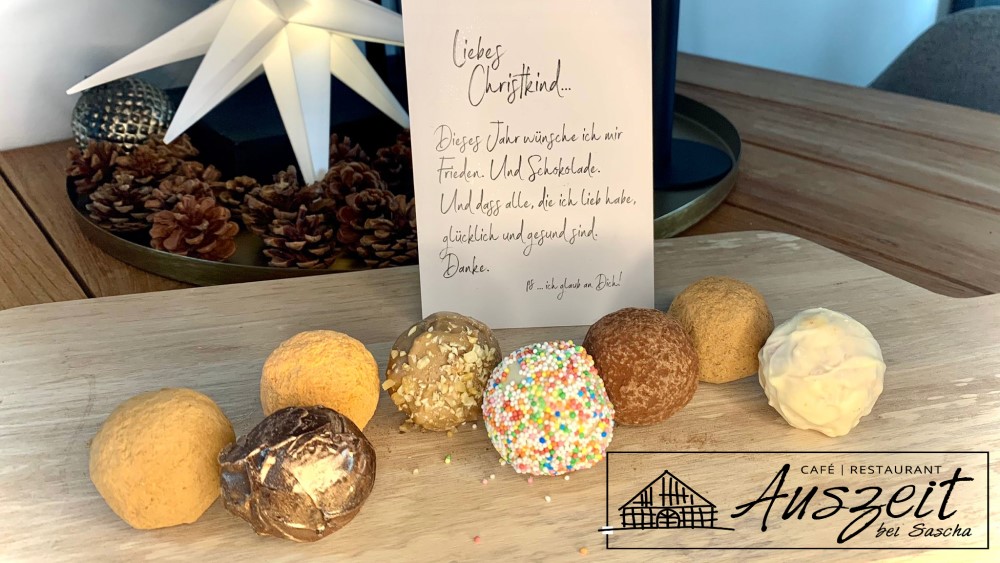 Liebes
Christkind...
Dieses Jahr wünsche ich mir
Frieden. Und Schokolade.
Und dass alle, die ich lieb habe,
glücklich und gesund sind.
Danke.
PS ... ich glaub an Dich!
CAFÉ | RESTAURANT
Auszeit
bei Sascha